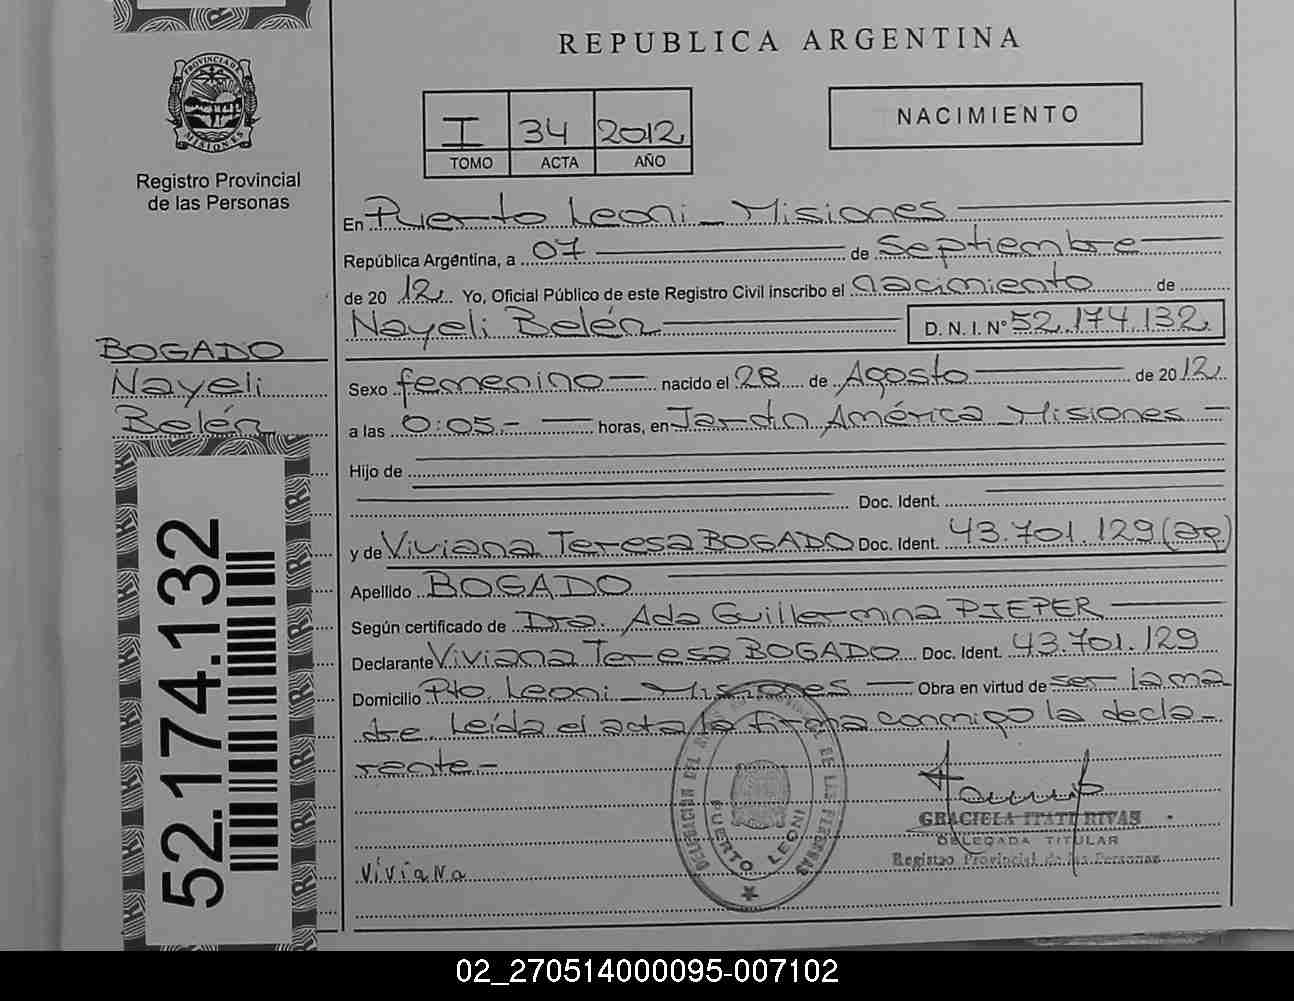 REPUBLICA ARGENTINA
I 34 2012
TOMO ACTA AÑO
NACIMIENTO
PROVINCIA DE MISIONES
Registro Provincial
de las Personas
En Puerto Leoni - Misiones
República Argentina, a 07 de Septiembre
de 2012. Yo, Oficial Público de este Registro Civil inscribo el nacimiento de
Nayeli Belén D. N. I. N° 52.174.132.
BOGADO
Nayeli
Belén
Sexo femenino nacido el 28 de Agosto de 2012
a las 0:05.- horas, en Jardín América Misiones -
Hijo de
Doc. Ident.
y de Viviana Teresa BOGADO Doc. Ident. 43.701.129 (ap.)
Apellido BOGADO
Según certificado de Dra. Ada Guillermina PIEPER
Declarante Viviana Teresa BOGADO Doc. Ident. 43.701.129
Domicilio Pto. Leoni - Misiones - Obra en virtud de ser la ma
dre. Leída el acta la firma conmigo la decla-
rante-
52.174.132
PUERTO LEONI
GRACIELA ITATI RIVAS
DELEGADA TITULAR
Registro Provincial de las Personas
Viviana
02_270514000095-007102